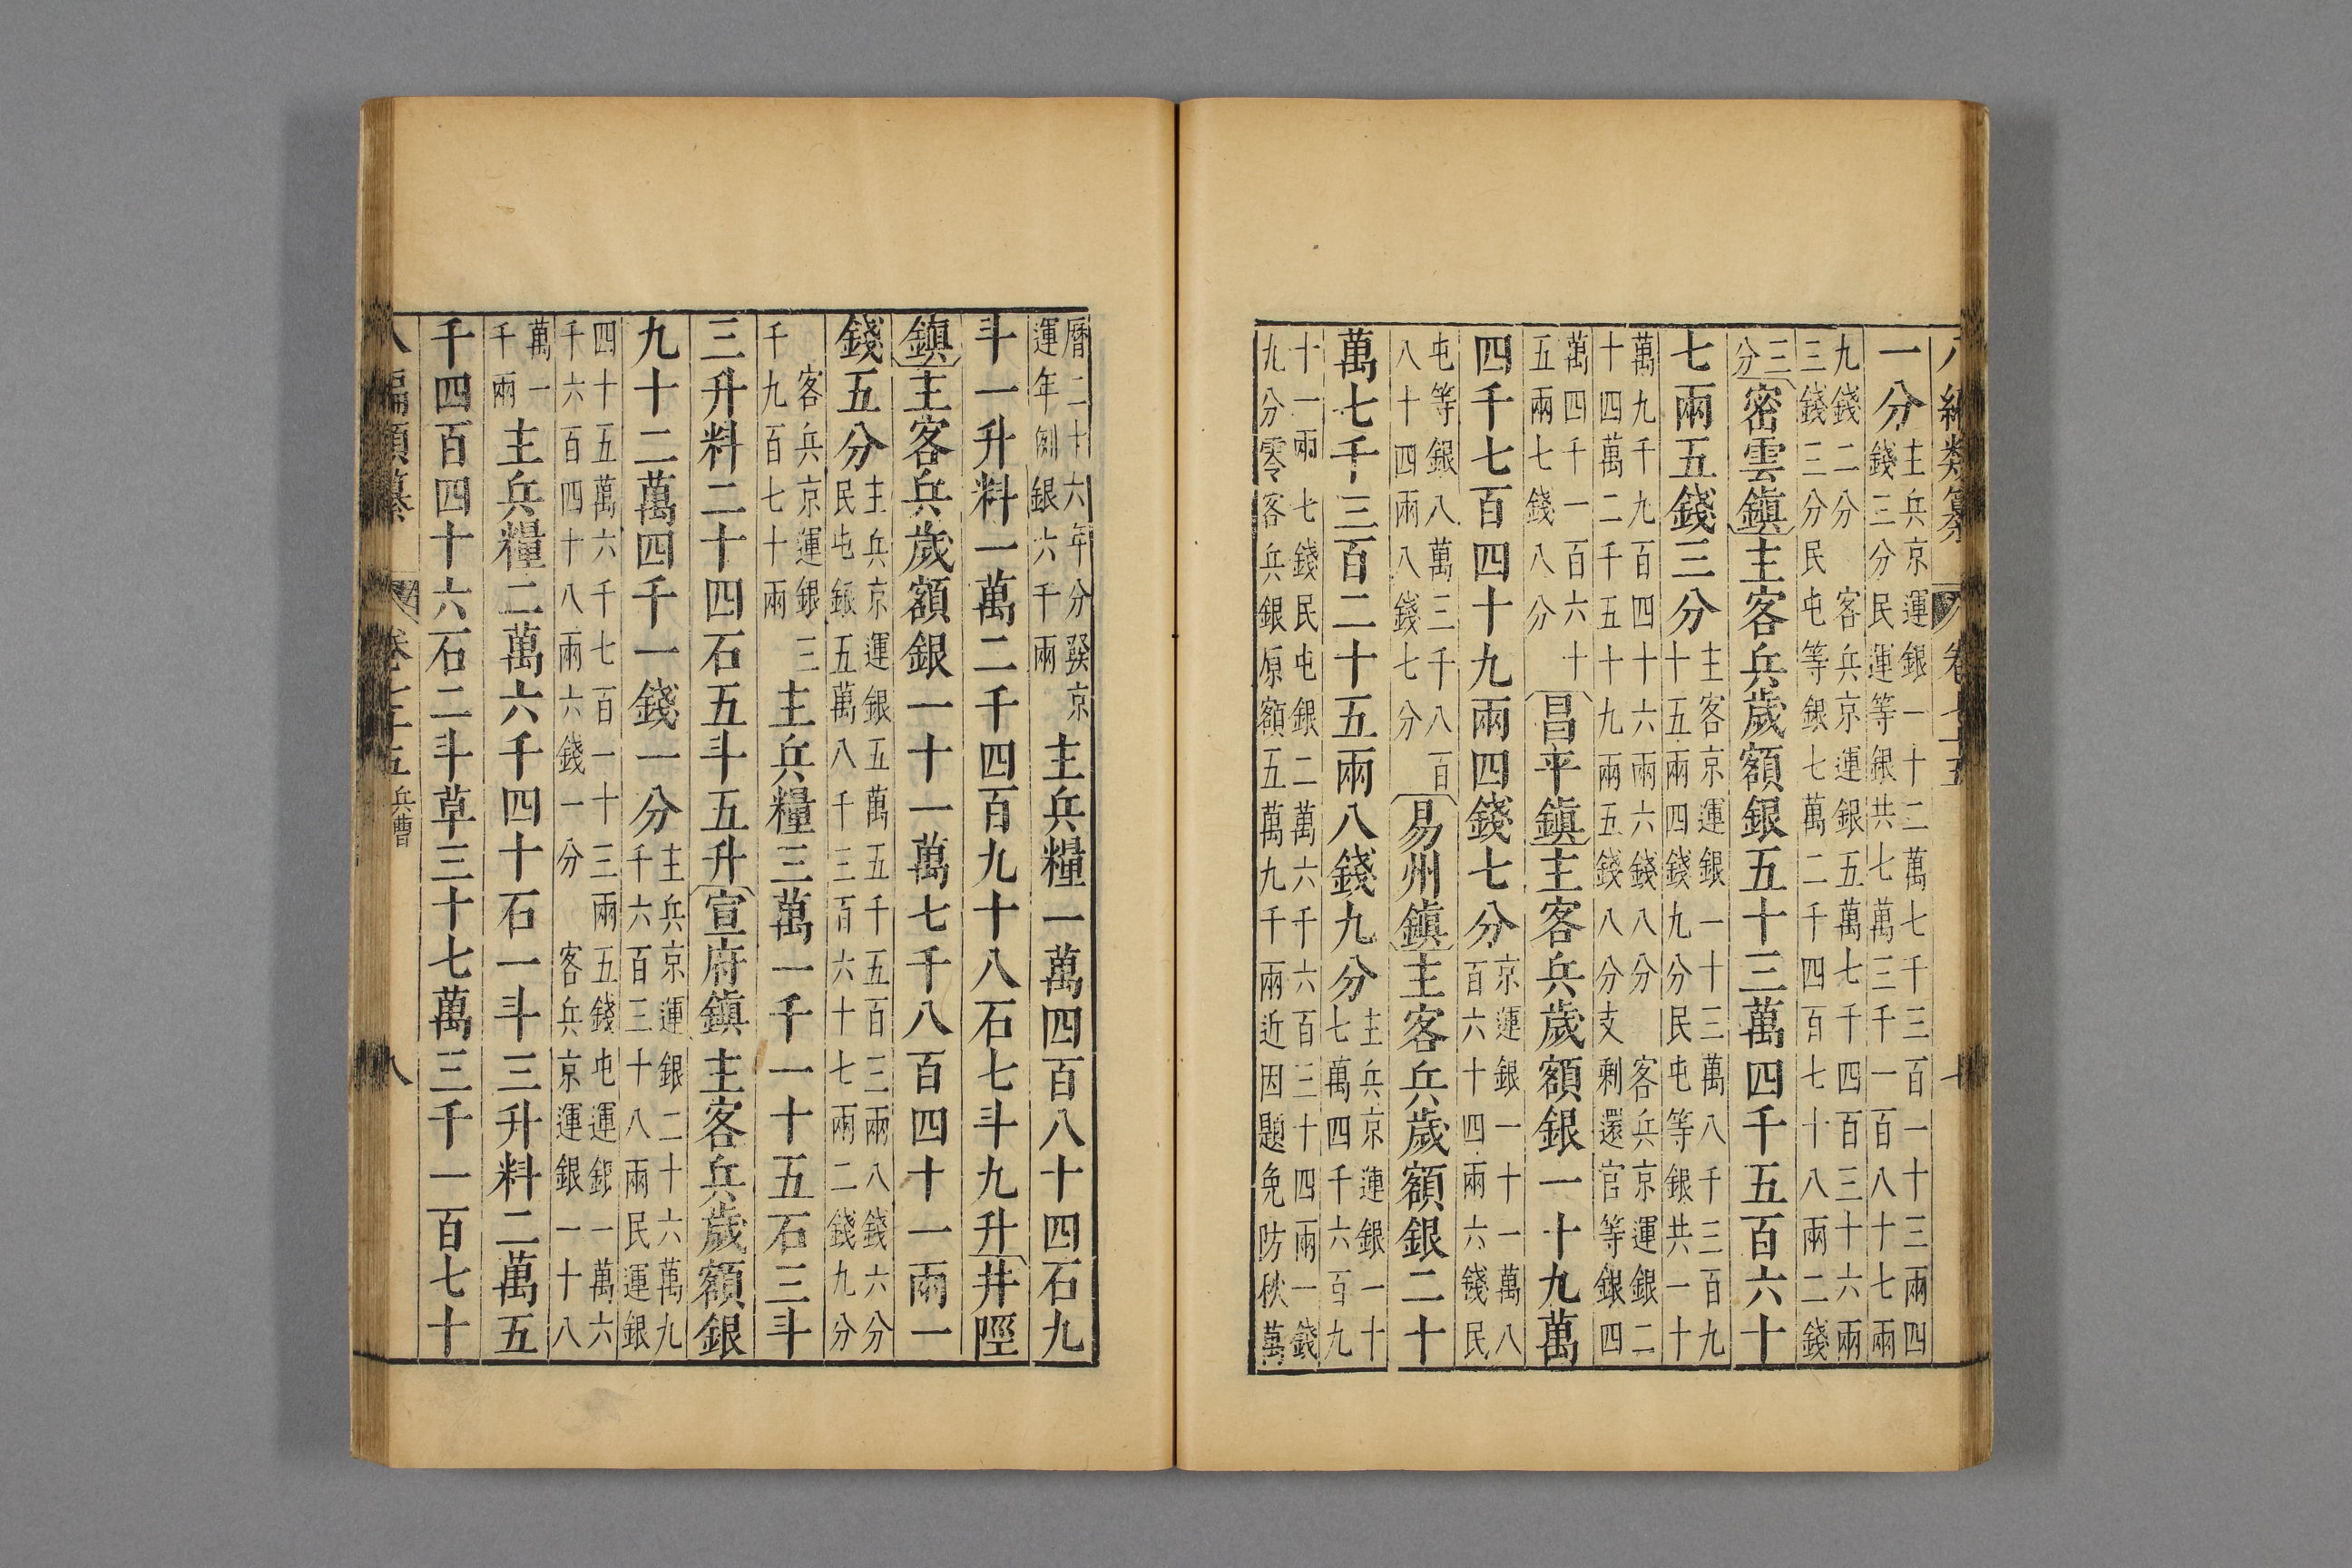 八編類纂 卷七十五 十
一分
主兵京運銀一十二萬七千三百一十三兩四
錢三分民運等銀共七萬三千一百八十七兩
九錢二分 客兵京運銀五萬七千四百三十六兩
三錢三分民屯等銀七萬二千四百七十八兩二錢
三
分
密雲鎮主客兵歲額銀五十三萬四千五百六十
七兩五錢三分
主客京運銀一十三萬八千三百九
十五兩四錢九分民屯等銀共一十
萬九千九百四十六兩六錢八分 客兵京運銀二
十四萬二千五十九兩五錢八分支剩還官等銀四
萬四千一百六十
五兩七錢八分
昌平鎮主客兵歲額銀一十九萬
四千七百四十九兩四錢七分
京運銀一十一萬八
百六十四兩六錢民
屯等銀八萬三千八百
八十四兩八錢七分
易州鎮主客兵歲額銀二十
萬七千三百二十五兩八錢九分
主兵京運銀一十
七萬四千六百九
十一兩 七錢民屯銀二萬六千六百三十四兩一錢
九分零客兵銀原額五萬九千兩近因題免防秋萬
曆二十六年分發京
運年例銀六千兩
主兵糧一萬四百八十四石九
斗一升料一萬二千四百九十八石七斗九升井陘
鎮主客兵歲額銀一十一萬七千八百四十一兩一
錢五分
主兵京運銀五萬五千五百三兩八錢六分
民屯銀五萬八千三百六十七兩二錢九分
客兵京運銀三
千九百七十兩
主兵糧三萬一千一十五石三斗
三升料二十四石五斗五升宣府鎮主客兵歲額銀
九十二萬四千一錢一分
主兵京運銀二十六萬九
千六百三十八兩民運銀
四十五萬六千七百一十三兩五錢屯運銀一萬六
千六百四十八兩六錢一分 客兵京運銀一十八
萬一
千兩
主兵糧二萬六千四十石一斗三升料二萬五
千四百四十六石二斗草三十七萬三千一百七十
八編類纂 卷七十五 兵曹 八